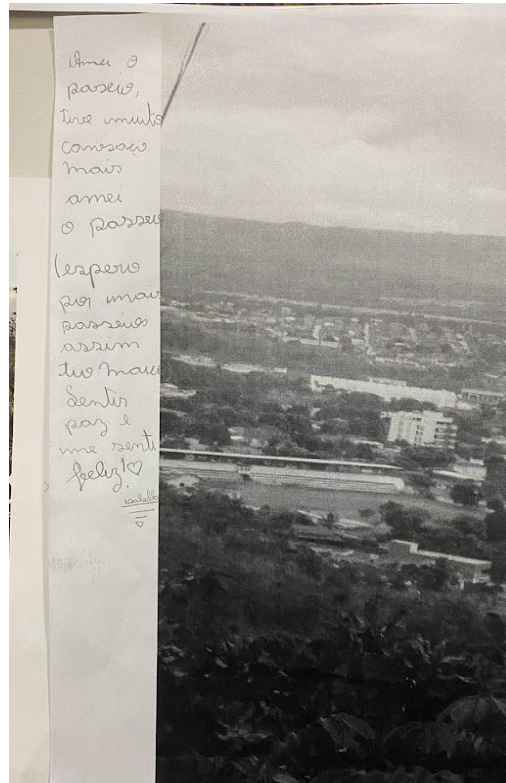 Amei o
passeio,
tive muito
cansaço
mais
amei
o passeio
espero
por mais
passeios
assim
Sentir
paz e
me senti
feliz!♡